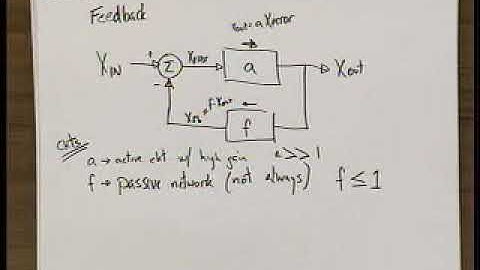 Feedback
Xout = a Xerror
XIN + Σ Xerror a Xout
-
Xfb = f·Xout f
ckts
a → active ckt w/ high gain a >> 1
f → passive network (not always) f ≤ 1